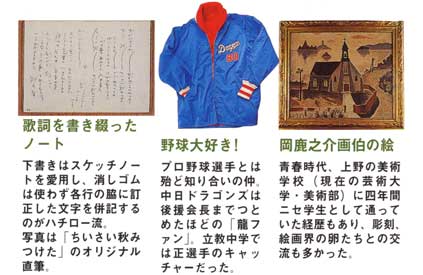 歌詞を書き綴った
ノート
下書きはスケッチノー
トを愛用し、消しゴム
は使わず各行の脇に訂
正した文字を併記する
のがハチロー流。
写真は「ちいさい秋み
つけた」のオリジナル
直筆。
Dragons
野球大好き!
プロ野球選手とは
殆ど知り合いの仲。
中日ドラゴンズは
後援会長までつと
めたほどの「龍フ
ァン」。立教中学で
は正選手のキャッ
チャーだった。
岡鹿之介画伯の絵
青春時代、上野の美術
学校(現在の芸術大
学・美術部)に四年間
ニセ学生として通って
いた経歴もあり、彫刻、
絵画界の卵たちとの交
流も多かった。